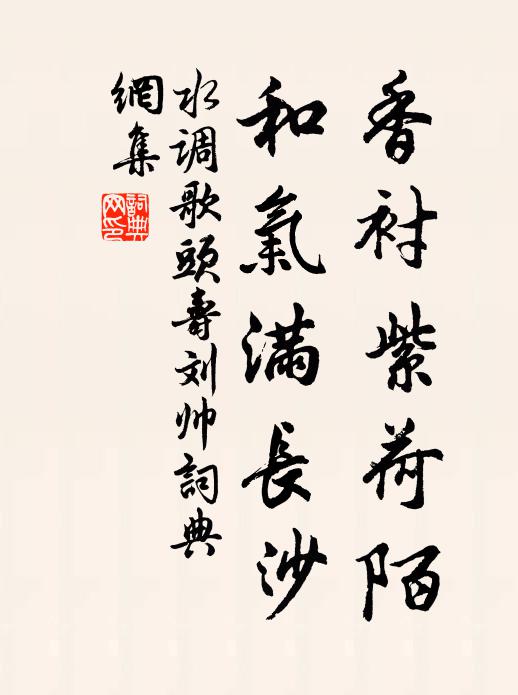 香衬紫荷陌
和氣满長沙
水调歌頭壽刘帅詞典
網集
詞典
网印